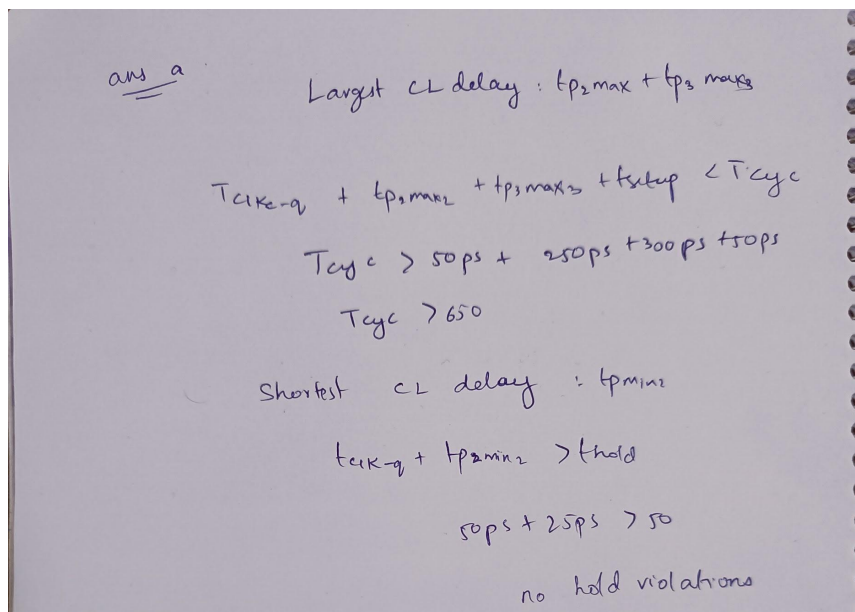 ans a
Largest CL delay : tp2max + tp3 max3
Tclk-q + tp2max2 + tp3max3 + tsetup < Tcyc
Tcyc > 50ps + 250ps +300ps +50ps
Tcyc > 650
Shortest CL delay : tpmin2
tclk-q + tp2min2 > thold
50ps + 25ps > 50
no hold violations